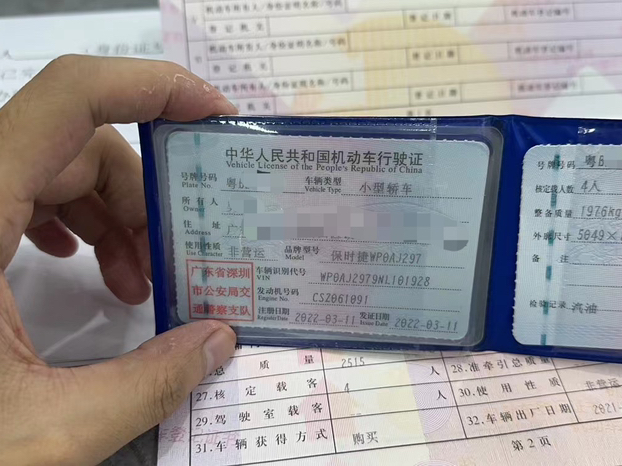 机动车所有人/身份证明名称/号码
登记机关
登记日期
机动车登记编号
机动车所有人/身份证明名称/号码
登记机关
登记日期
机动车登记编号
中华人民共和国机动车行驶证
Vehicle License of the People's Republic of China
号牌号码 粤B 车辆类型 小型轿车
Plate No. Vehicle Type
所有人
Owner
住址 广
Address
使用性质 非营运 品牌型号 保时捷WP0AJ297
Use Character Model
广东省深圳
市公安局交
通警察支队
车辆识别代号 WP0AJ2979NL101928
VIN
发动机号码 CSZ061091
Engine No.
注册日期 2022-03-11 发证日期 2022-03-11
Register Date Issue Date
号牌号码 粤B
核定载人数 4人
整备质量 1976kg
外廓尺寸 5049×
备注
检验记录 汽油
总质量 2515
28.准牵引总质量
27.核定载客 4 人
30.使用性质 非营运
29.驾驶室载客 人
32.车辆出厂日期 2021-
31.车辆获得方式 购买
第2页